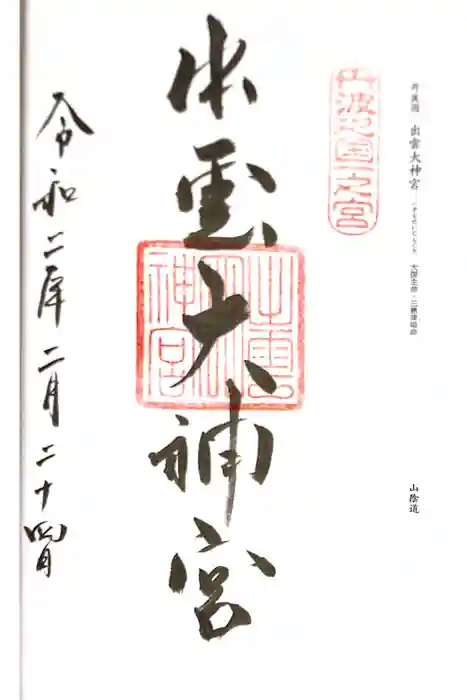 丹波国 出雲大神宮 いずもだいじんぐう 大国主命・三穂津姫命
山陰道
丹波之国一之宮
出雲大神宮
出雲大神宮
令和二年二月二十四日